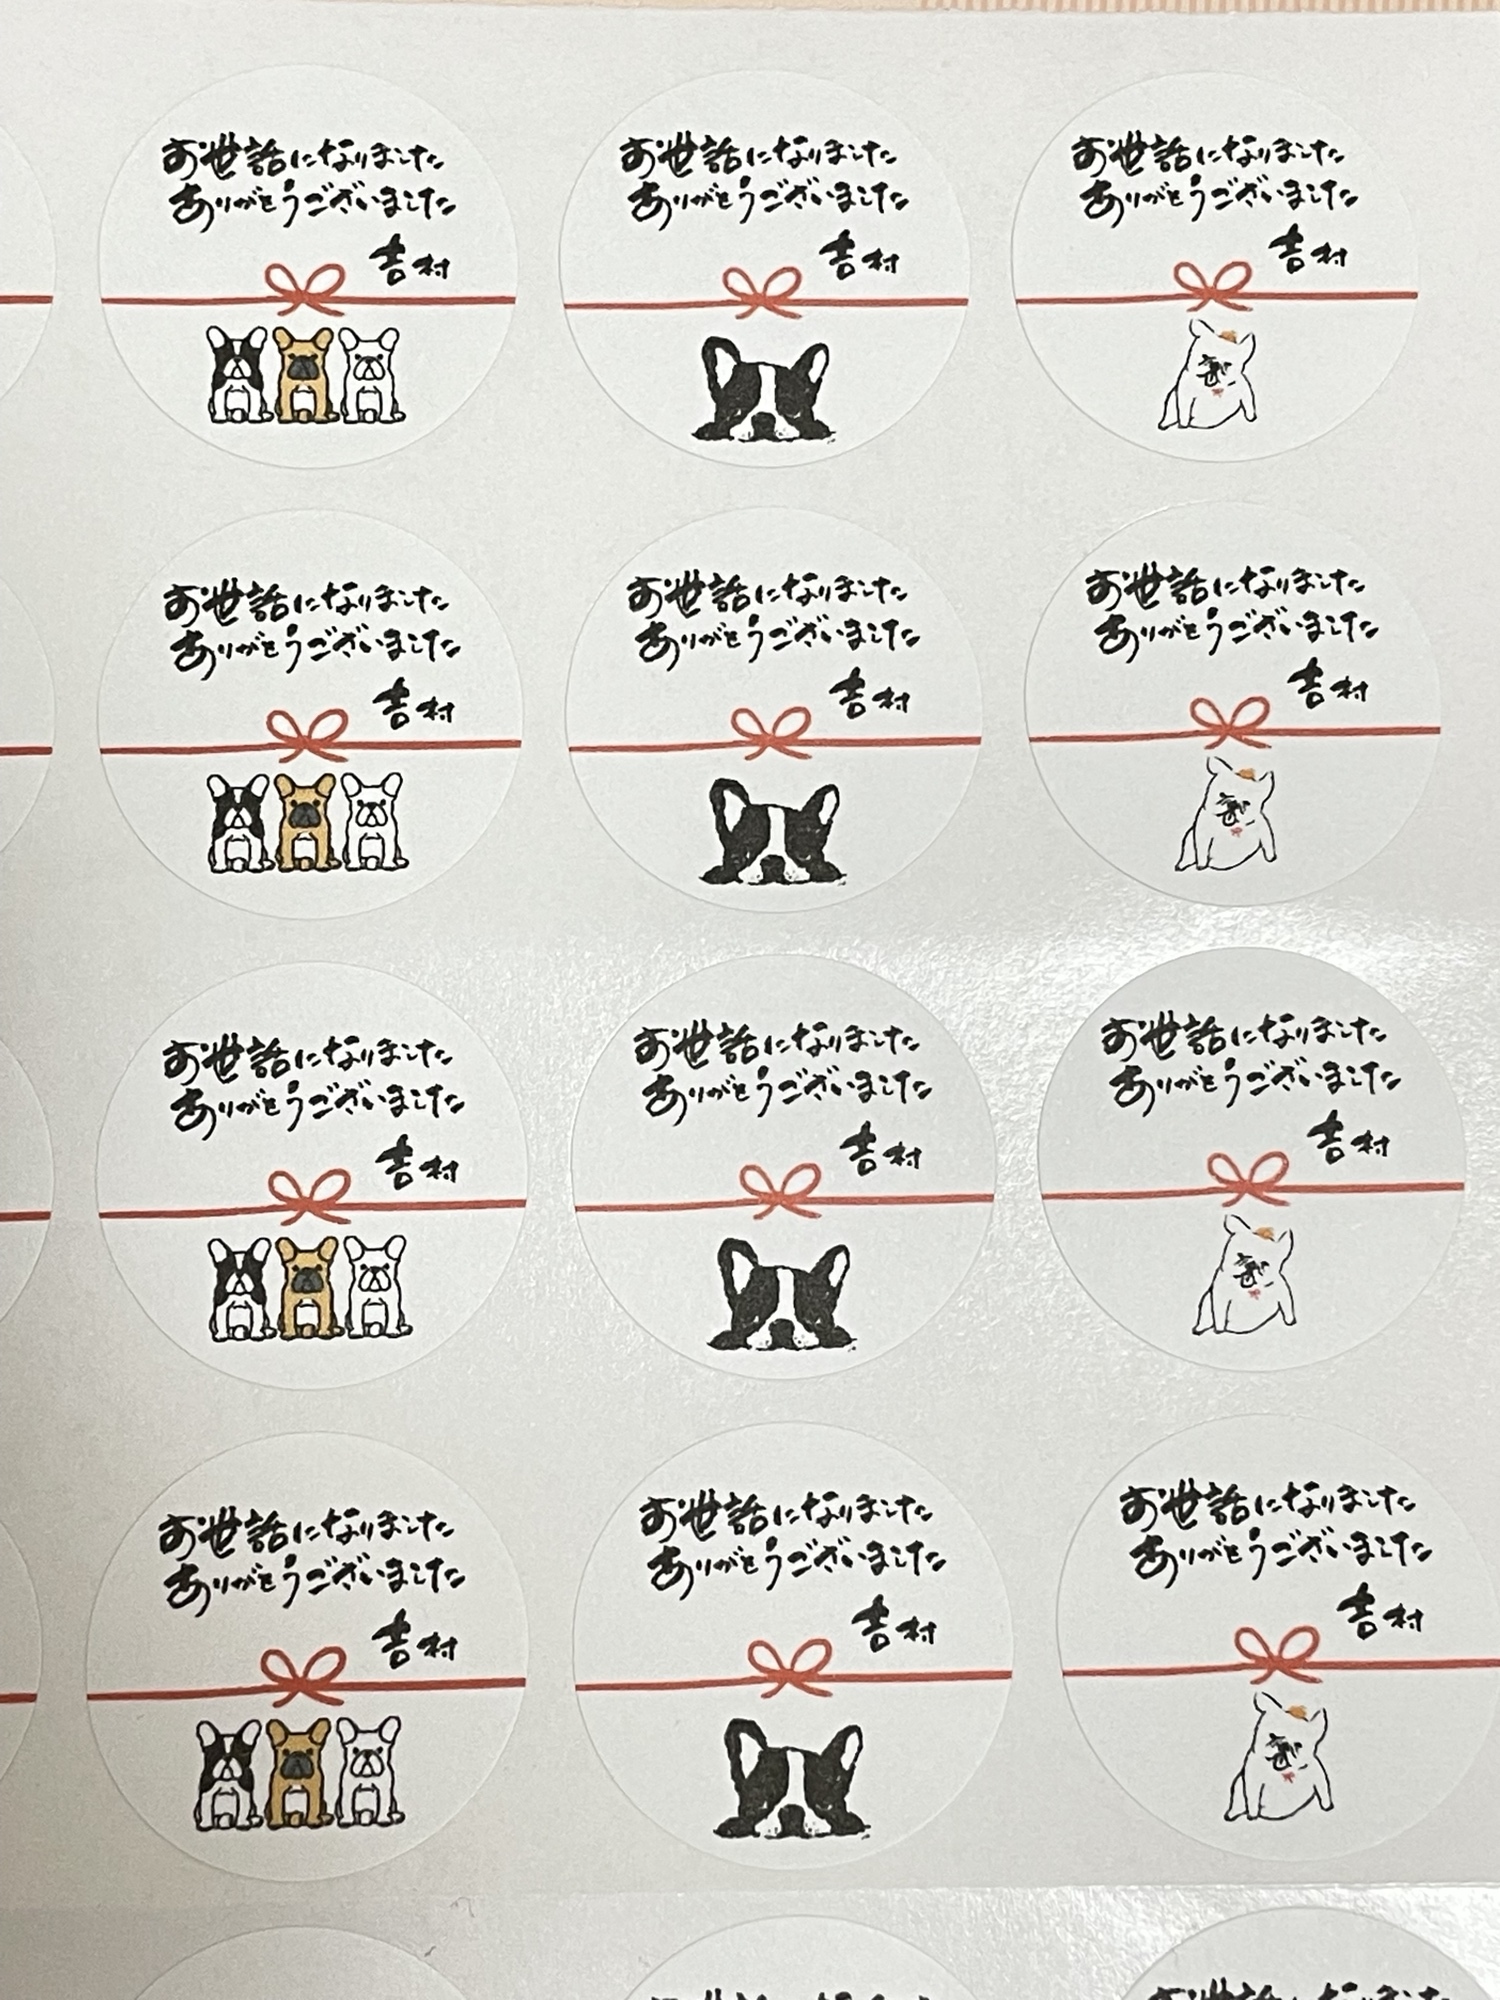 お世話になりました
ありがとうございました
吉村
お世話になりました
ありがとうございました
吉村
お世話になりました
ありがとうございました
吉村
お世話になりました
ありがとうございました
吉村
お世話になりました
ありがとうございました
吉村
お世話になりました
ありがとうございました
吉村
お世話になりました
ありがとうございました
吉村
お世話になりました
ありがとうございました
吉村
お世話になりました
ありがとうございました
吉村
お世話になりました
ありがとうございました
吉村
お世話になりました
ありがとうございました
吉村
お世話になりました
ありがとうございました
吉村